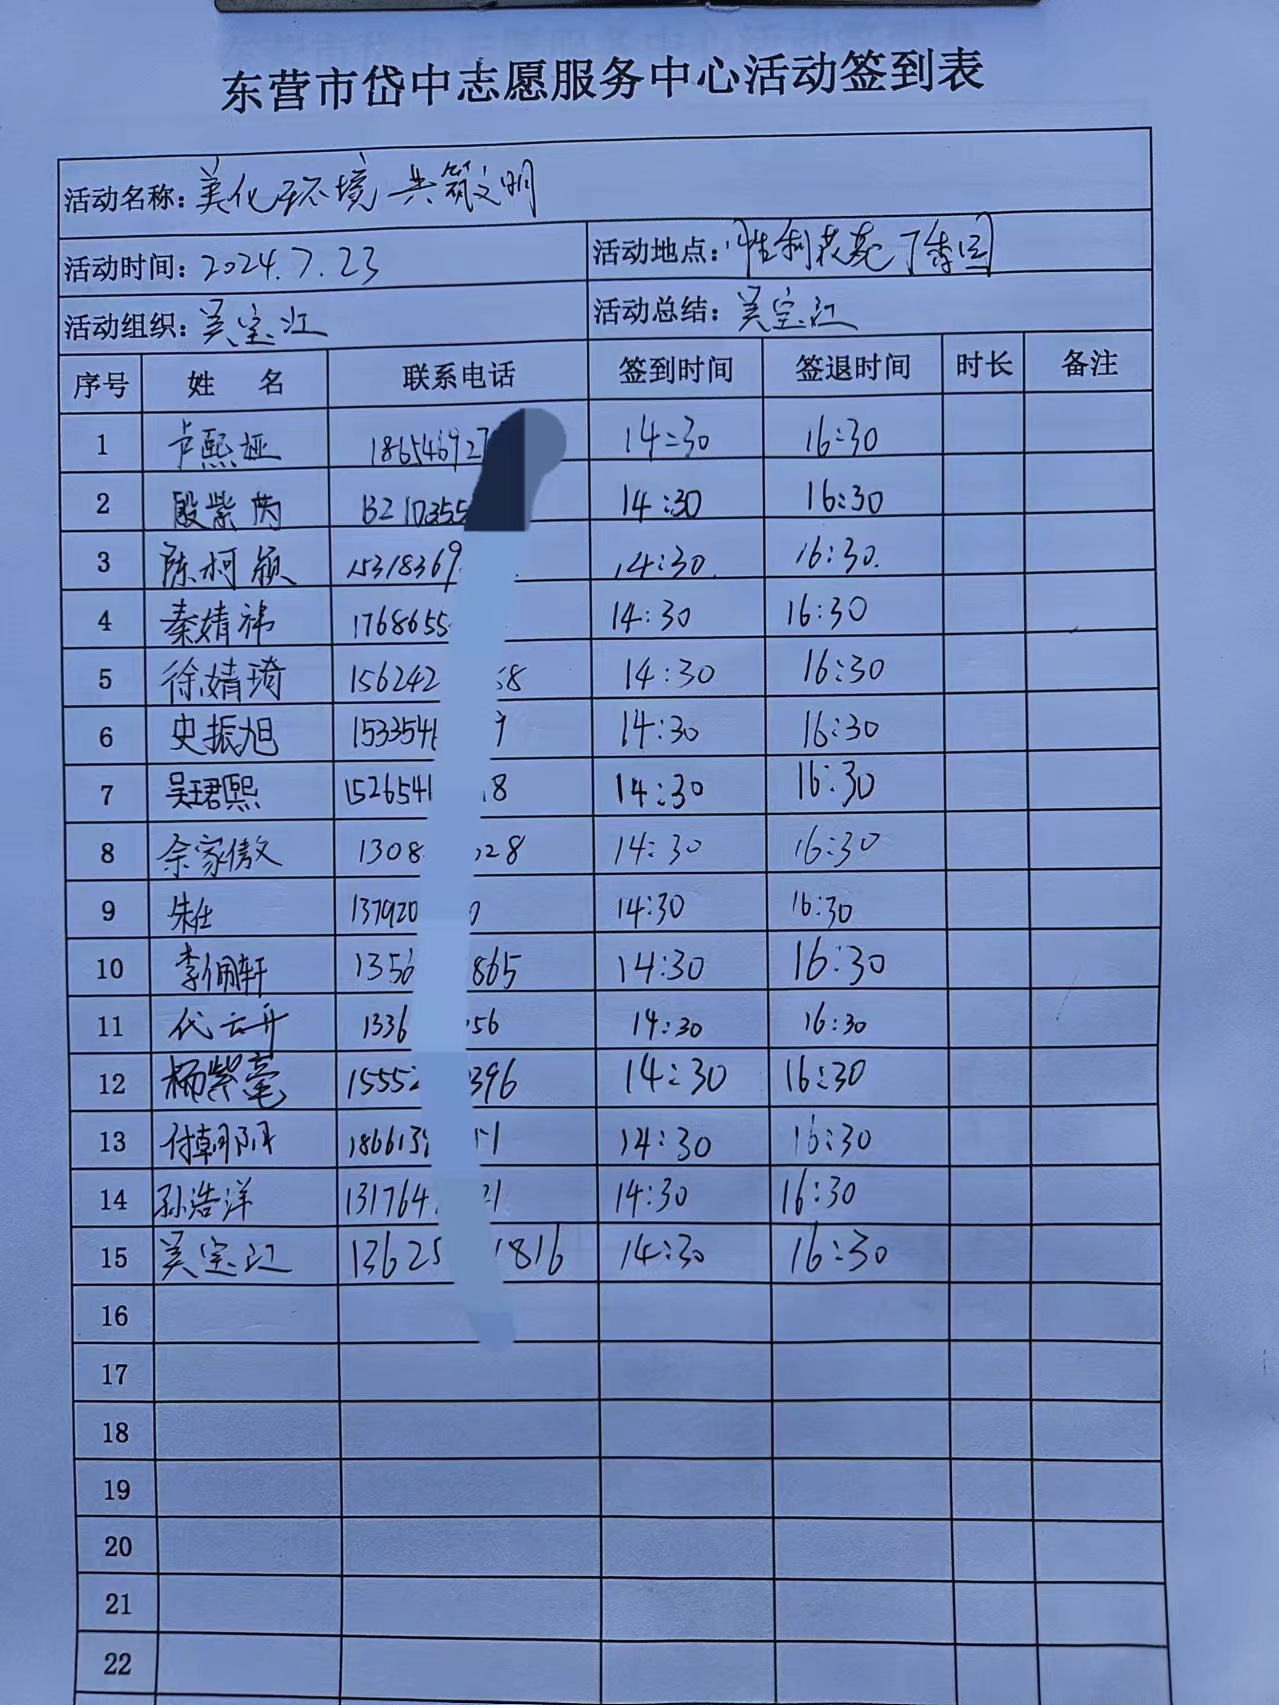 东营市岱中志愿服务中心活动签到表
活动名称: 美化环境 共筑文明
活动时间: 2024.7.23 活动地点: 胜利花苑
活动组织: 吴宝江 活动总结: 吴宝江
序号 姓 名 联系电话 签到时间 签退时间 时长 备注
1 卢熙娅 18654692 14:30 16:30
2 殷紫芮 13210355 14:30 16:30
3 陈柯颖 15318369 14:30 16:30
4 秦婧祎 1768655 14:30 16:30
5 徐婧琦 156242 58 14:30 16:30
6 史振旭 1533541 9 14:30 16:30
7 吴珺熙 1526541 18 14:30 16:30
8 余家傲 1308 28 14:30 16:30
9 朱仕 137920 0 14:30 16:30
10 李佩轩 1356 865 14:30 16:30
11 代云舟 1336 56 14:30 16:30
12 杨紫毫 1555 396 14:30 16:30
13 付朝阳 186613 1 14:30 16:30
14 孙浩洋 131764 21 14:30 16:30
15 吴宝江 13625 1816 14:30 16:30
16
17
18
19
20
21
22